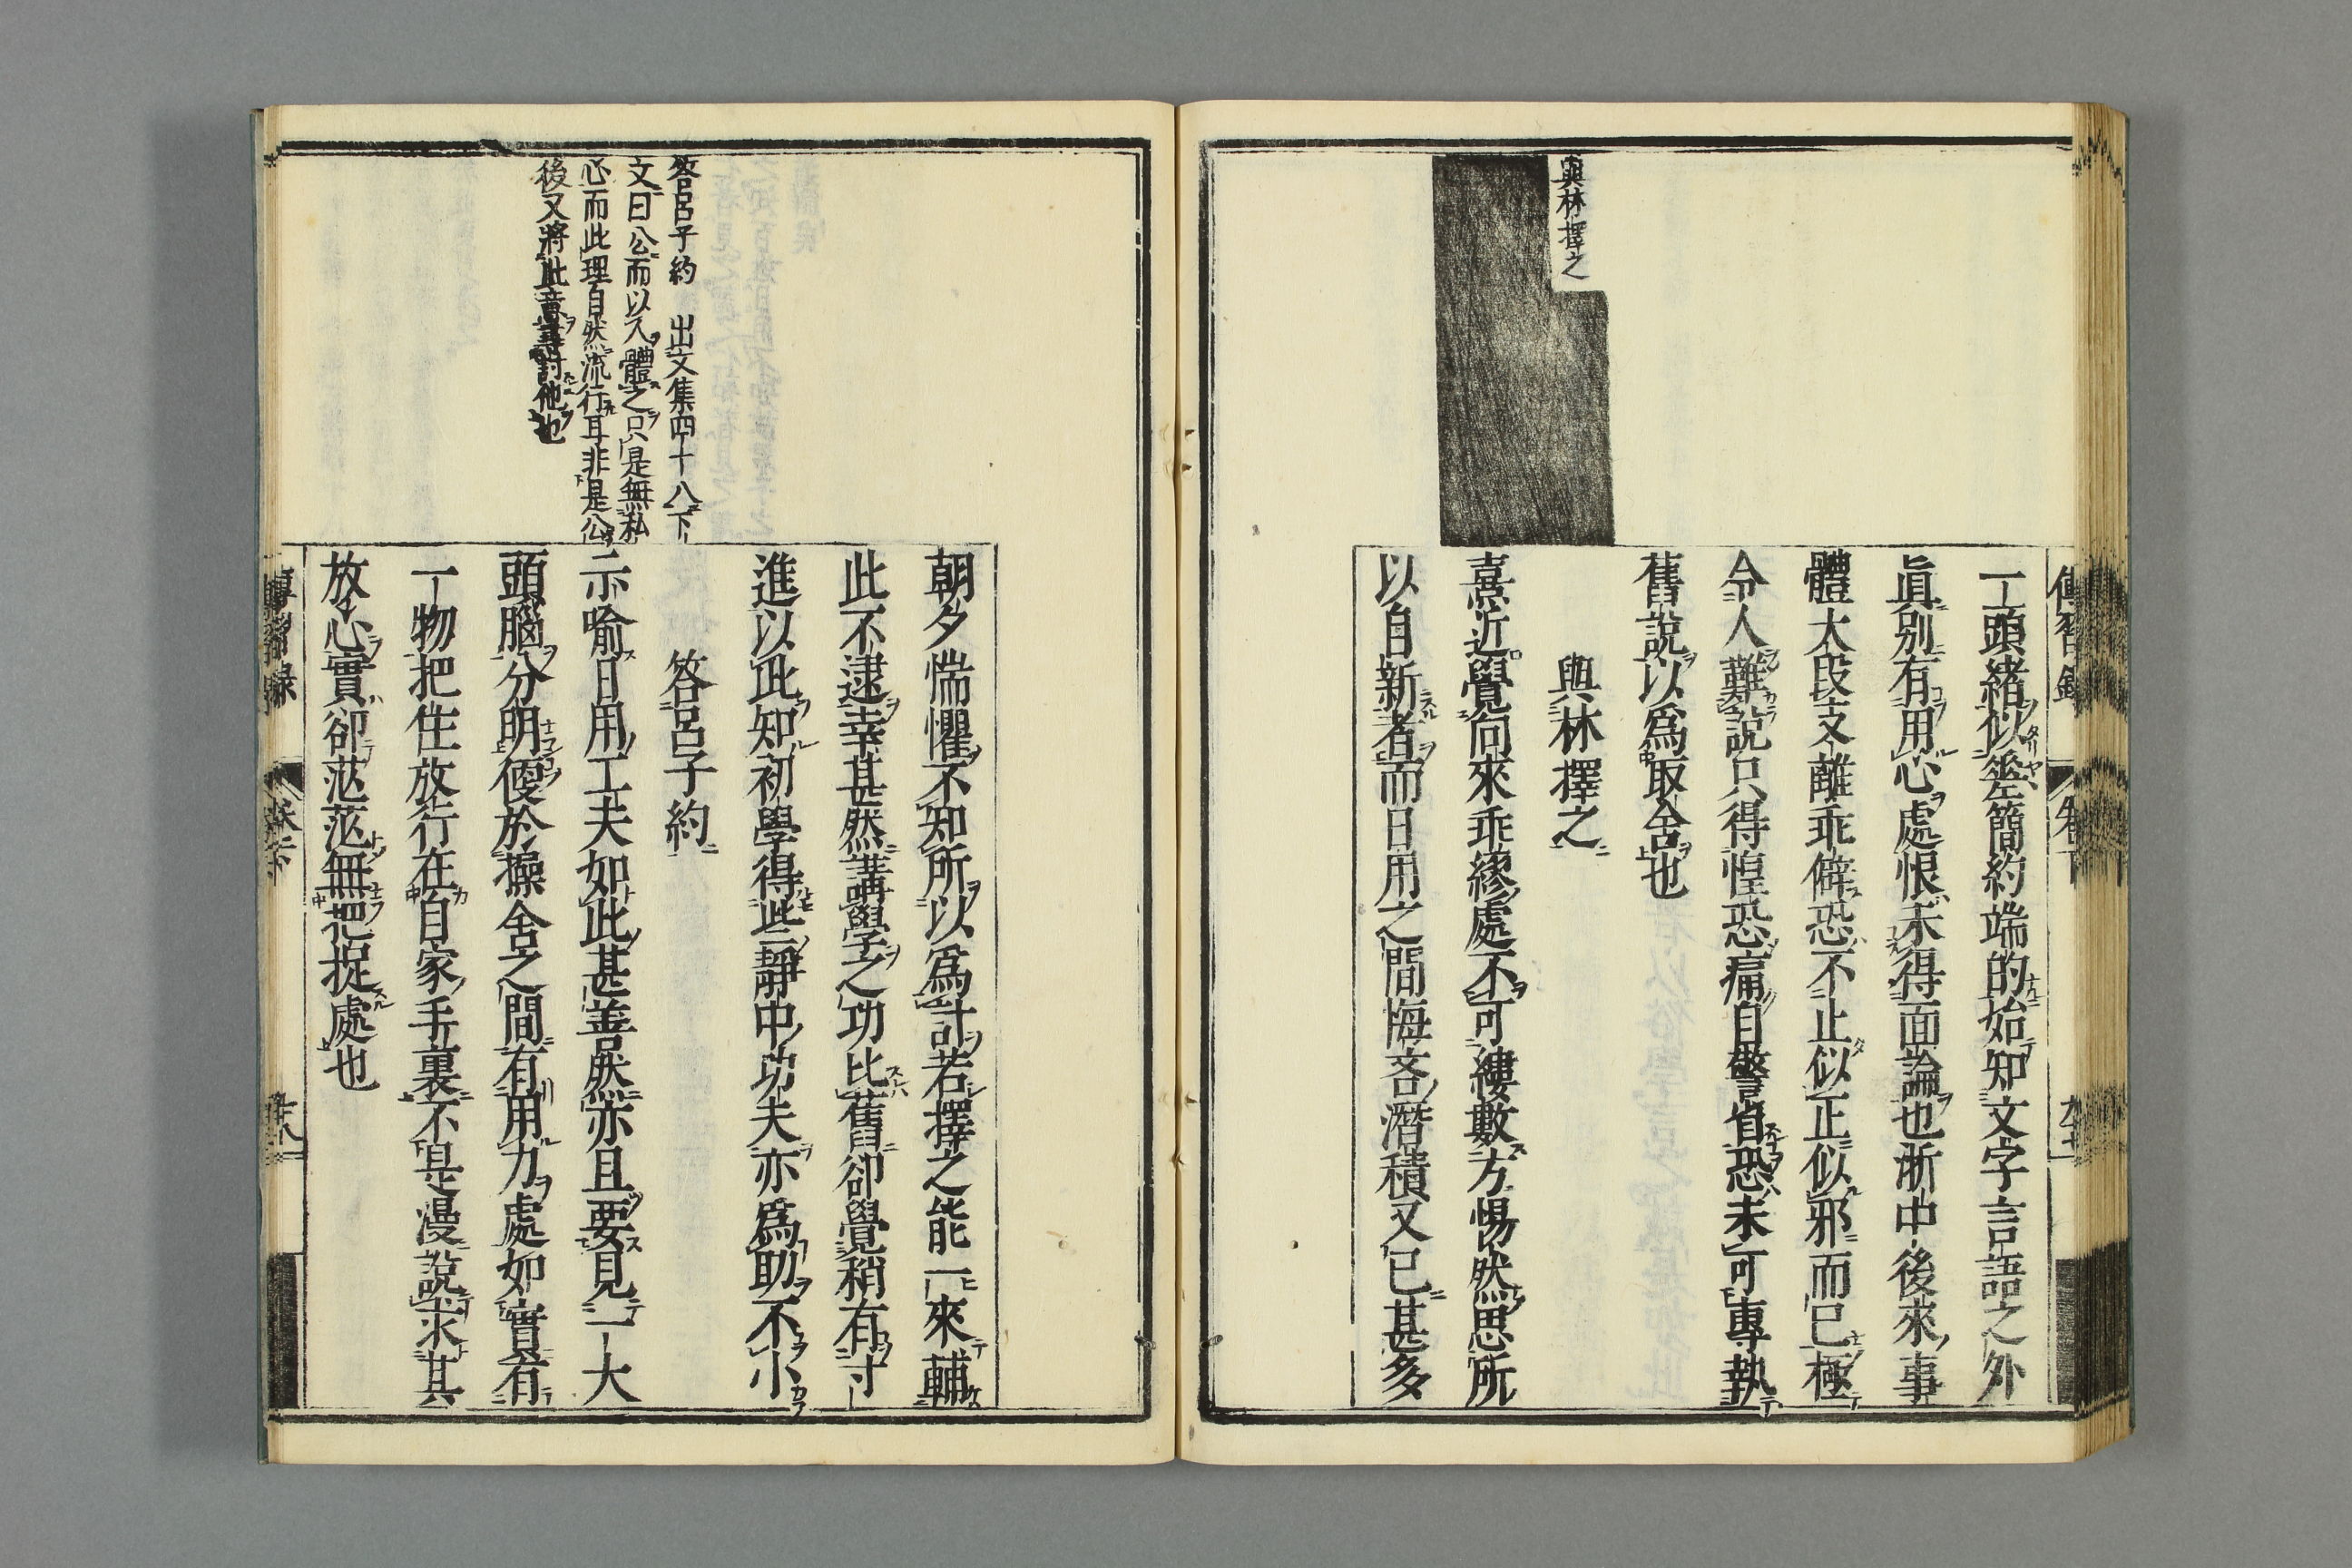 與林擇之
一頭緒似差簡約端的始知文字言語之外
眞別有用心處恨未得面論也浙中後來事
體大段支離乖僻恐不止似正似邪而已極
令人難說只得惶恐痛自警省恐未可專執
舊說以爲取舍也
與林擇之
熹近覺向來乖繆處不可縷數方惕然思所
以自新者而日用之間悔吝潛積又已甚多
答呂子約　出文集四十八下
文曰公而以人體之只是無私
心而此理自然流行耳非是公
後又將此意尋討他也
朝夕惴懼不知所以爲計若擇之能一來輔
此不逮幸甚然講學之功比舊卻覺稍有寸
進以此知初學得些靜中功夫亦爲助不小
答呂子約
示喻日用工夫如此甚善然亦且要見一大
頭腦分明便於操舍之間有用力處如實有
一物把住放行在自家手裏不是漫說求其
放心實卻茫茫無把捉處也
傳習錄